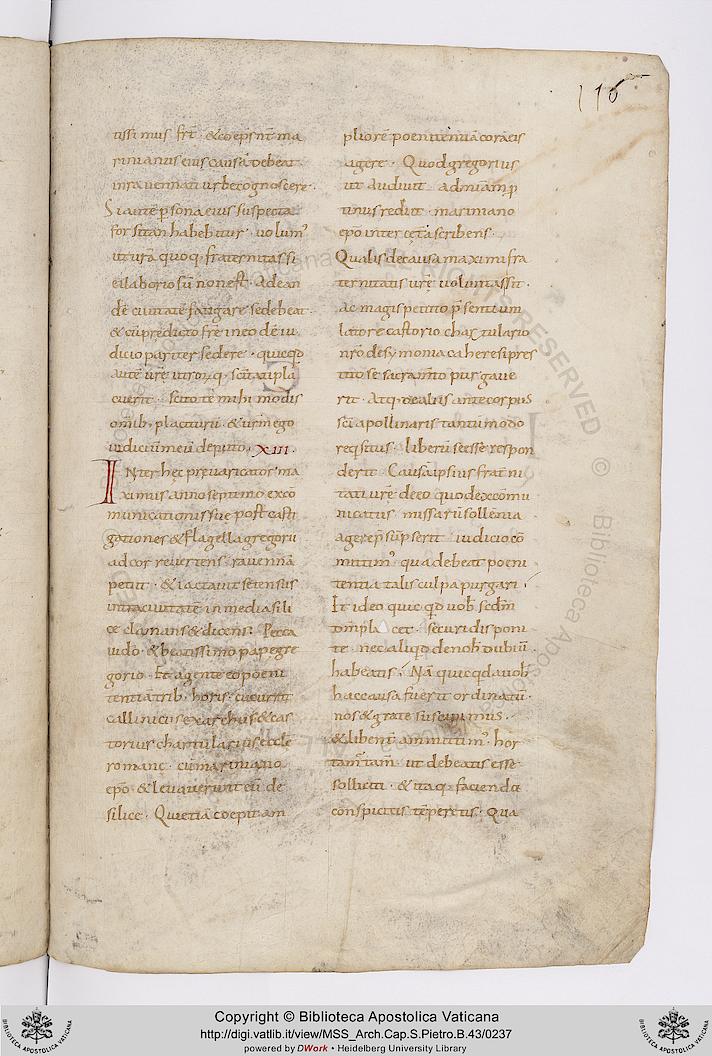 116
tissimus frȓ · & coep̄s n̄r̄ ma
rinianus eius causā debeat
inravennati urbe cognoscere ·
Si autē p̱sona eius suspecta
forsitan habebitur · volum'
ut
fraternitas si
ei laboriosū non est · Ad ean
dē civitatē fatigare se debeat ·
& cū predicto frē in eo dē iu
dicio pariter sedere · quicqd̄
autē
placu
cuerit · scitote mihi modis
omib · placiturū · & ut in ego
iudiciū meū deputo · XIII ·
INter hęc prevaricator ma
ximus anno septimo exco
municationis sue post casti
gationes & flagella gregorii
ad cor revertens · ravennā
petiit · & iactavit se iensus
intra civitatē in media sili
ce clamans & dicens · Pecca
vi dō · & beatissimo papę gre
gorio · Et agente eo poeni
tentiā trib · horis · cucurrit
callinicus exarchus & cas
torius chartularius ecclę
romanę · cū mariniano
ep̄o · & levaverunt eū de
silice · Qui etiā coepit am
pliorē poenitentiā corā eis
agere · Quod gregorius
ut audivit · ad mām p̱
tinus redīit · mariniano
ep̄o inter cęta scribens ·
Qualis de causa maximi fra
ternitatis vrē voluntas sit ·
ac magis petitio p̄sentium
latore castorio chartulario
nr̄o de symoniaca heresi pres
tito se sacram̄to purgave
rit · Atq · de aliis ante corpus
sc̄i apollinaris tantūmodo
reqsitus · liberū se esse respon
derit · Causā ipsius frat̄ni
tati vrē deeo quod excōmu
nicatus missarū sollēnia
agere p̄sūpserit · iudicio cō
mittim' qua debeat poeni
tentia talis culpa purgari ·
Et ideo quicqd̄ vob̄ scdm̄
dm̄ placet · securi disponi
te · nec aliqd̄ denob̄ dubiū
habeatis · Nā quicqd a vob̄
hac causa fuerit ordinatū ·
nos & grate suscipimus ·
& libent̄ ammittim' · hor
tam̄ tam̄ · ut debeatis esse
solliciti · & ita q · faciendā
conspicitis tēperetis · Qua
Copyright © Biblioteca Apostolica Vaticana
http://digi.vatlib.it/view/MSS_Arch.Cap.S.Pietro.B.43/0237
powered by DWork • Heidelberg University Library